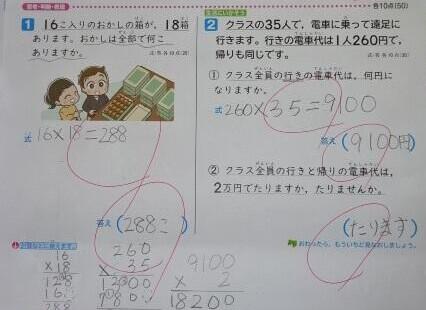 思考・判断・表現
各10点(50)
1 16こ入りのおかしの箱が、18箱
あります。おかしは全部で何こ
ありますか。
式・答 各10点(20)
式 16×18=288
答え (288こ
生活にいかそう
2 クラスの35人で、電車に乗って遠足に
行きます。行きの電車代は1人260円で、
帰りも同じです。
式・答 各10点(20)
① クラス全員の行きの電車代は、何円に
なりますか。
式 260×35=9100
答え (9100円)
② クラス全員の行きと帰りの電車代は、
2万円でたりますか、たりませんか。
(たります)
おわったら、もういちど見なおしましょう。
16
×18
128
16
288
260
×35
1300
780
9100
× 2
18200